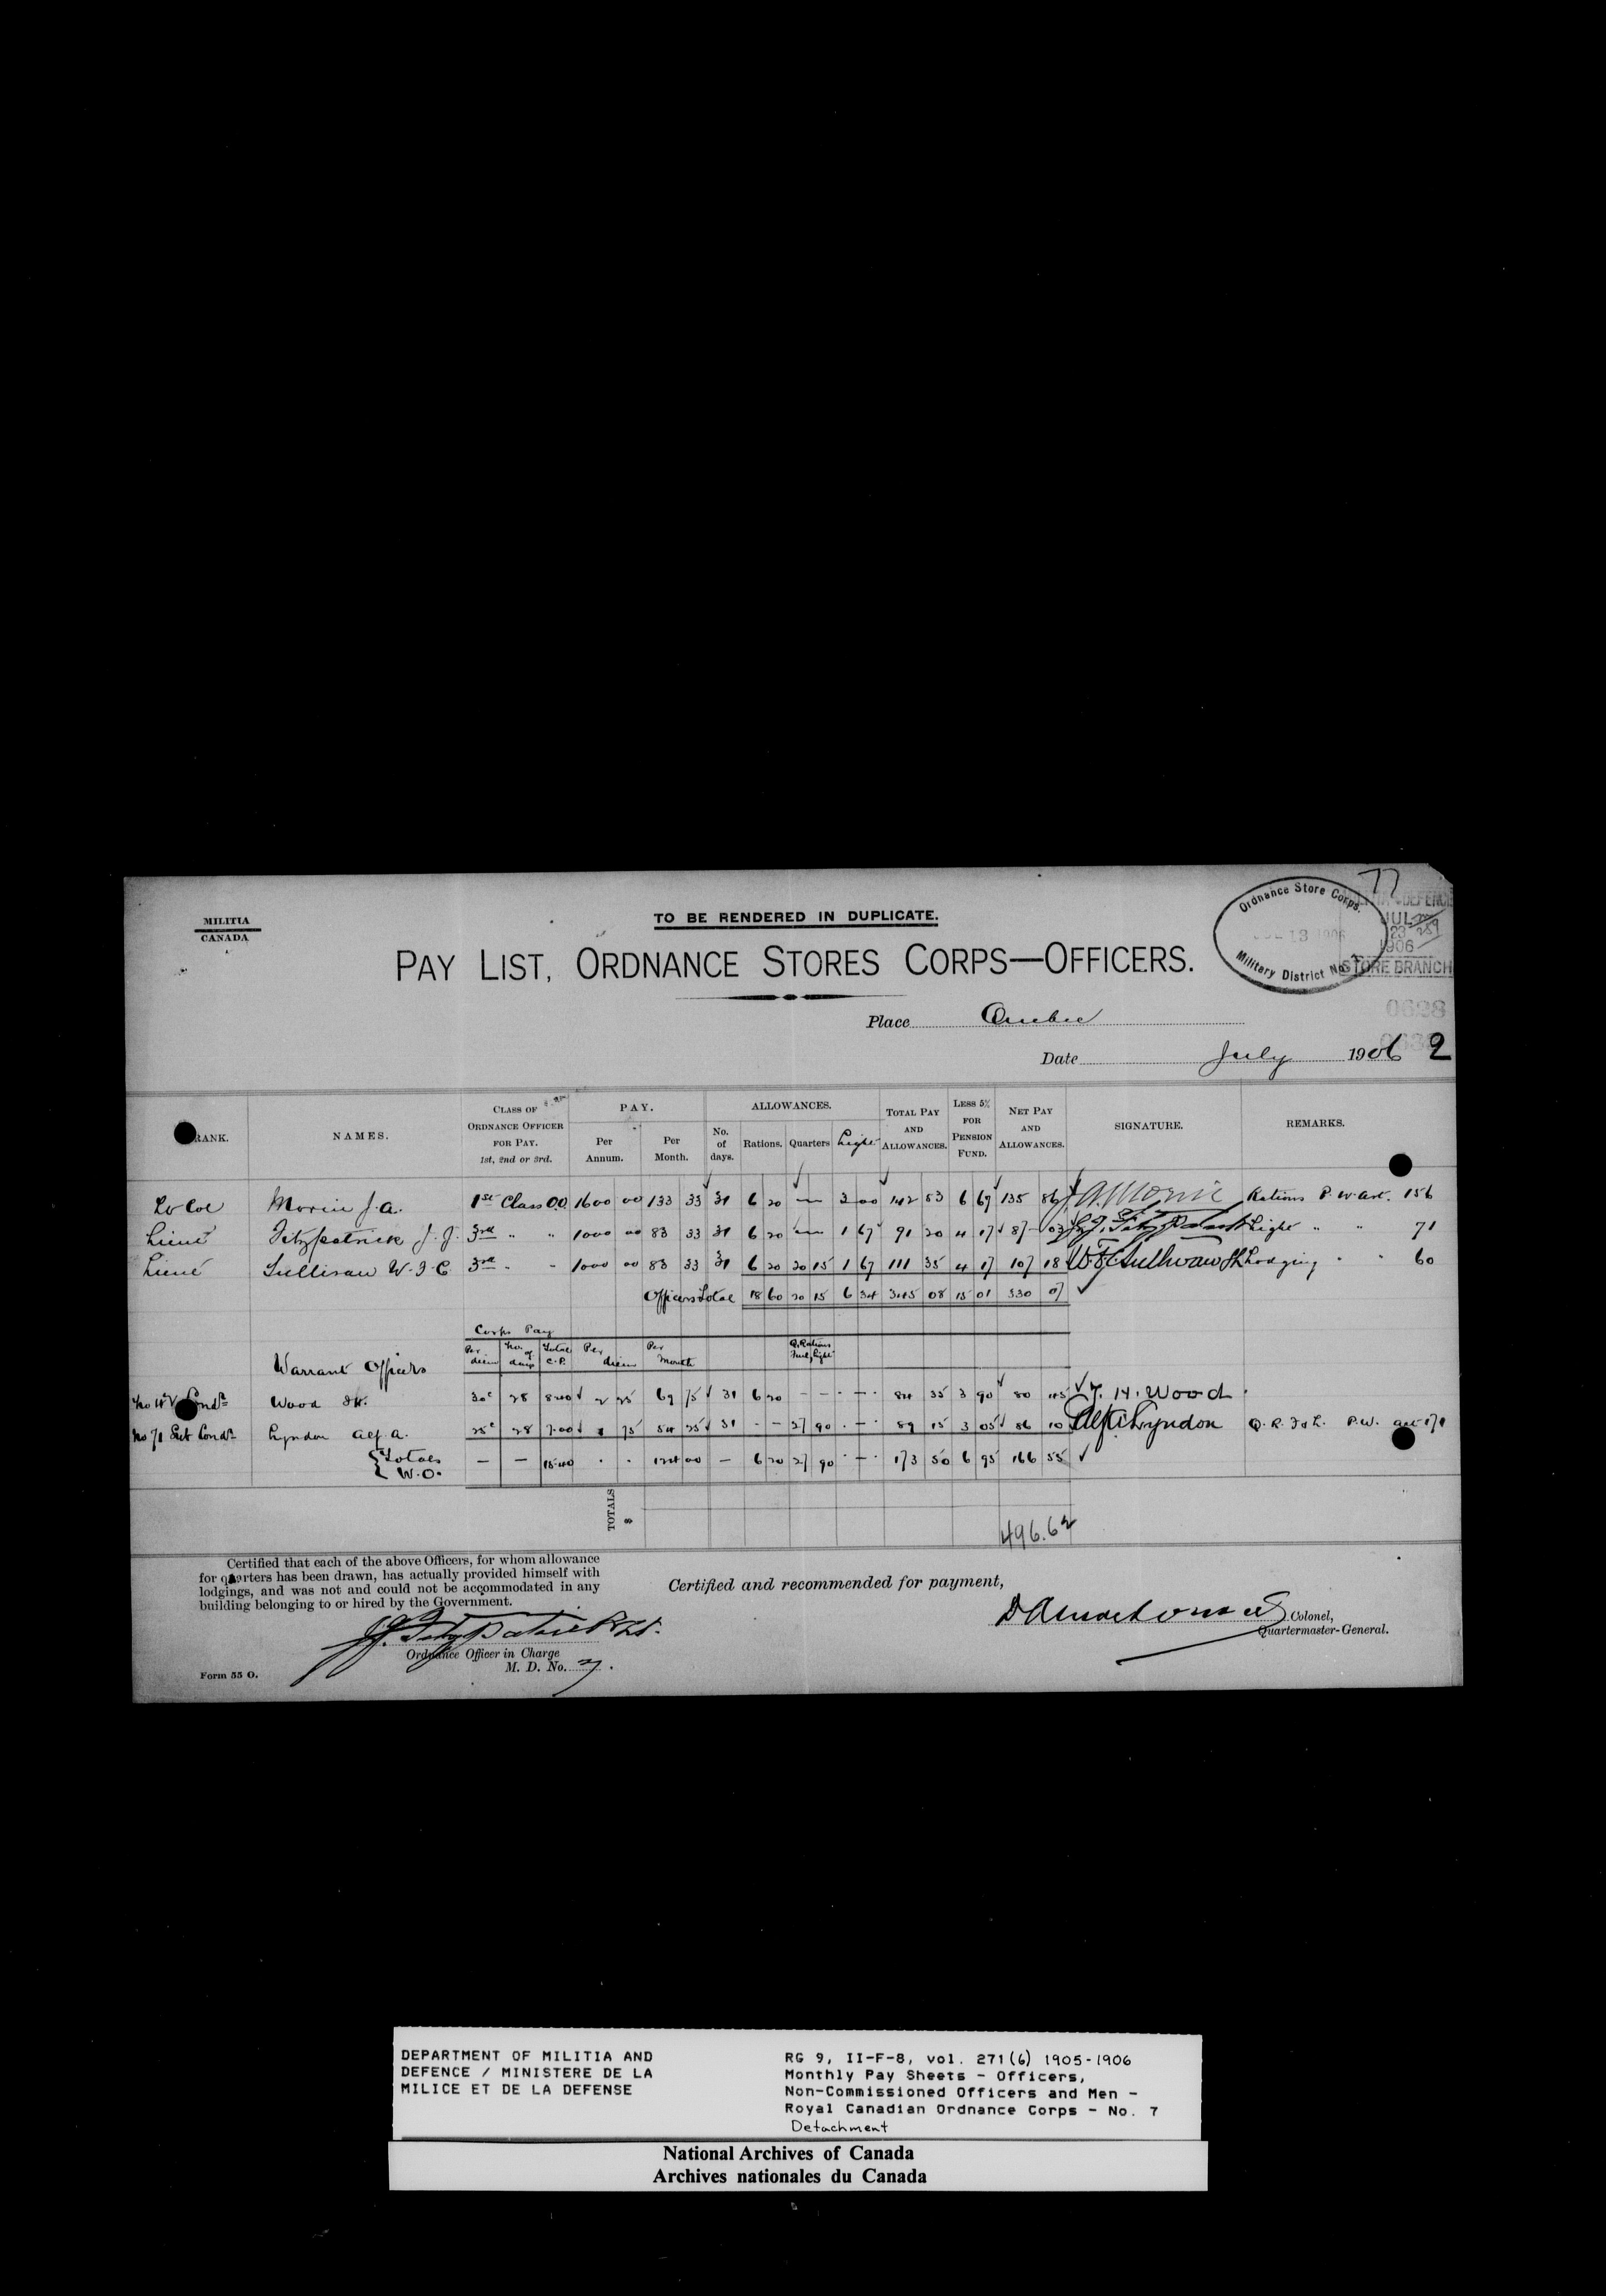 77
MILITIA
CANADA
TO BE RENDERED IN DUPLICATE.
Ordnance Store Corps.
JUL 13 1906
Military District No. 7
DEFENCE
JUL
23
1906
STORE BRANCH
PAY LIST, ORDNANCE STORES CORPS—OFFICERS.
0628
Place Quebec
Date July 1906 2
RANK. NAMES. CLASS OF ORDNANCE OFFICER FOR PAY. 1st, 2nd or 3rd. PAY. Per Annum. Per Month. No. of days. ALLOWANCES. Rations. Quarters Light TOTAL PAY AND ALLOWANCES. LESS 5% FOR PENSION FUND. NET PAY AND ALLOWANCES. SIGNATURE. REMARKS.
Lt Col Morin J. A. 1st Class O.O. 1600 00 133 33 31 6 20 3 00 142 53 6 67 135 86 J.A. Morin Rations P. W. Art. 156
Lieut Fitzpatrick J. J. 3rd " " 1000 00 83 33 31 6 20 1 67 91 20 4 17 87 03 J.J. Fitzpatrick Light " " 71
Lieut Sullivan W. F. C. 3rd " " 1000 00 83 33 31 6 20 20 15 1 67 111 35 4 17 107 18 W.F.C. Sullivan Lt Lodging " " 60
Officers Total 18 60 20 15 6 34 345 08 15 01 330 07
Corps Pay
Warrant Officers Per diem No. of days Total C.P. Per diem Per Month Q, Rations Fuel, Light
Wood 30c 28 8 40 2 25 69 75 31 6 20 - - - - 84 35 3 90 80 45 Wood
No 71 Lyndon Alf. A. 25c 28 7.00 1 75 54 25 31 - - 27 90 - - 89 15 3 05 86 10 Alf A Lyndon Q. R. F & L. P.W. 171
Totals W.O. — — 15.40 . . 124 00 — 6 20 27 90 - - 173 50 6 95 166 55
TOTALS $
496.62
Certified that each of the above Officers, for whom allowance
for quarters has been drawn, has actually provided himself with
lodgings, and was not and could not be accommodated in any
building belonging to or hired by the Government.
Certified and recommended for payment,
J.J. Fitzpatrick Lt.
Ordnance Officer in Charge
M. D. No. 7.
Colonel,
Quartermaster-General.
Form 55 O.
DEPARTMENT OF MILITIA AND
DEFENCE / MINISTERE DE LA
MILICE ET DE LA DEFENSE
RG 9, II-F-8, vol. 271(6) 1905-1906
Monthly Pay Sheets - Officers,
Non-Commissioned Officers and Men -
Royal Canadian Ordnance Corps - No. 7
Detachment
National Archives of Canada
Archives nationales du Canada